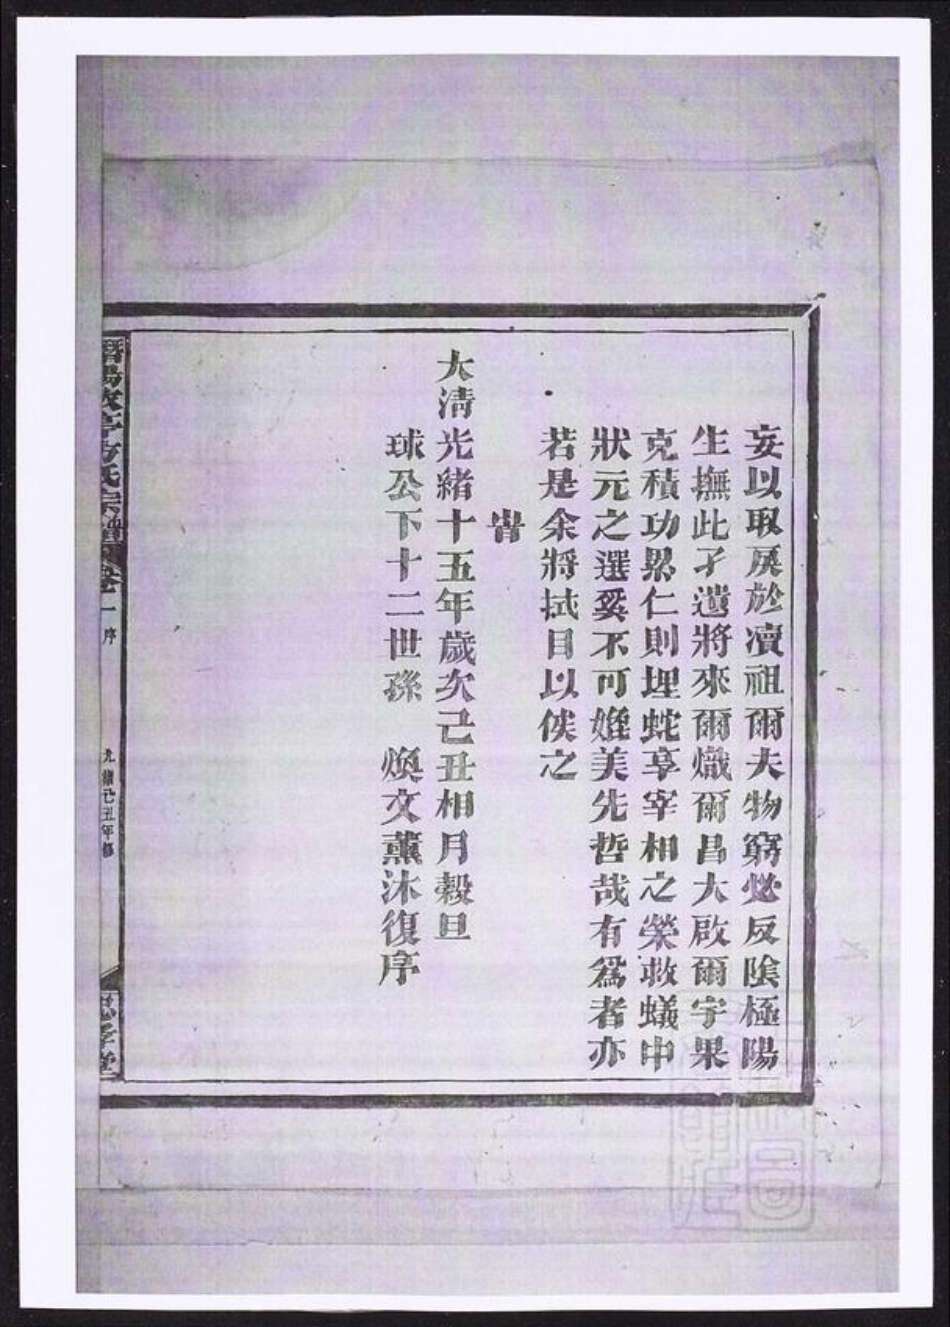 妄以取戾於瀆祖爾夫物窮必反陰極陽
生撫此孑遺將來爾熾爾昌大啟爾宇果
克積功累仁則埋蛇享宰相之榮救蟻中
狀元之選奚不可媲美先哲哉有為者亦
若是余將拭目以俟之
旹
大清光緒十五年歲次己丑相月穀旦
球公下十二世孫 煥文薰沐復序
方氏宗譜 卷一 序 光緒己丑年修